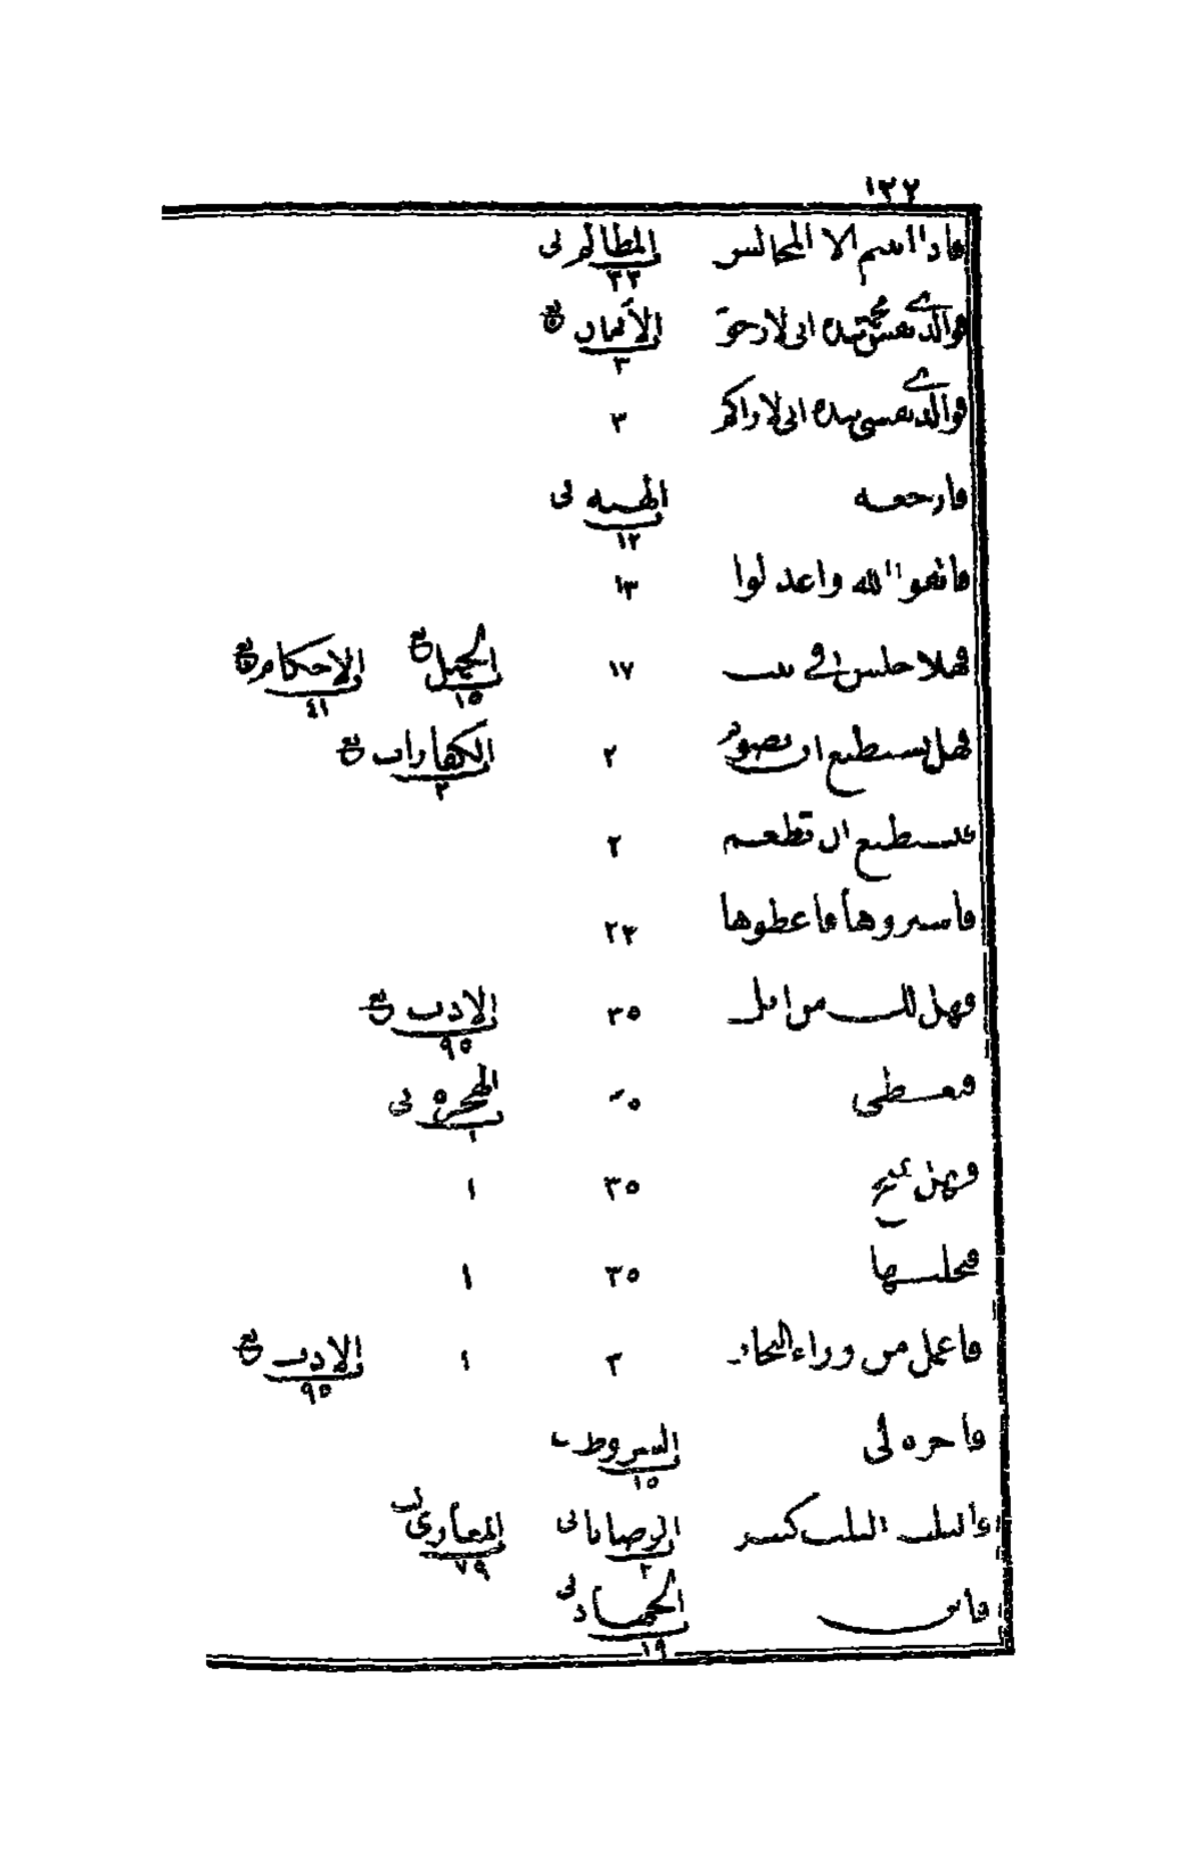 ١٣٢
فاذا ابيتم الا المجالس المظالم نى ٣٣
فوالذي نفس محمد بيده انى لارجو الأيمان ٣
فوالذي نفسى بيده انى لاراكم ٣
فارجعه الهبه نى ١٢
فاتقوا الله واعدلوا ١٣
فهلا جلس فى بيت ١٧ الحيل ١٥ الاحكام ٤١
فهل تستطيع ان تصوم ٢ الكفارات ٢
فتستطيع ان تطعم ٢
فاستروها فاعطوها ٢٣
فهل لك من ابل ٣٥ الادب ٩٥
فتعطى ٣٥ الهجره نى ١
فهل تمنح ٣٥ ١
فتحلبها ٣٥ ١
فاعمل من وراء البحار ٣ ١ الادب ٩٥
فاجره لى الشروط ١٥
فالثلث الثلث كثير الوصايا نى ٢ المغازى ٧٩
فأين الجهاد نى ١٩